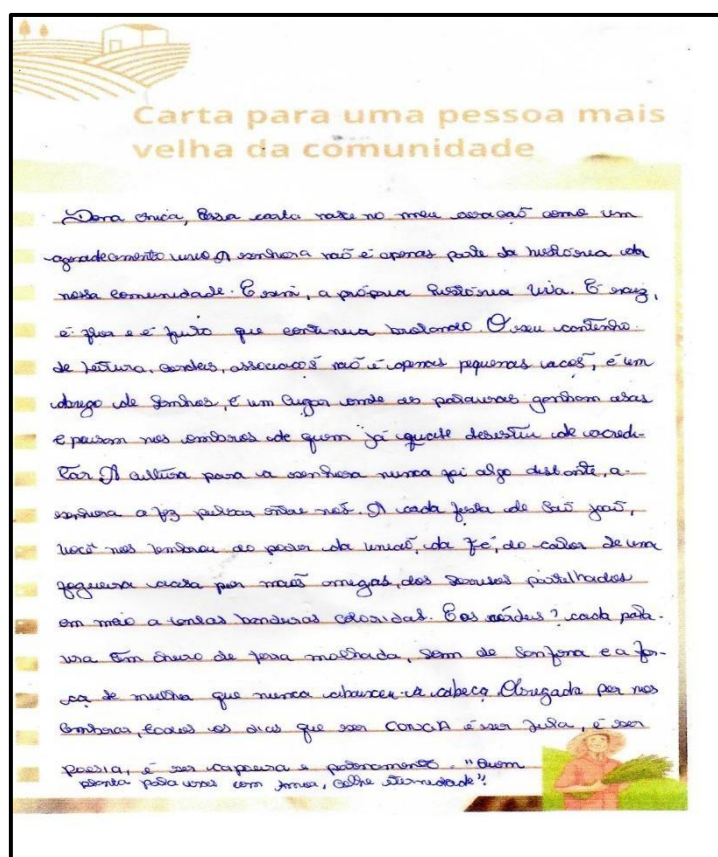 Carta para uma pessoa mais
velha da comunidade
Dona Onica, Essa carta nasce no meu coração como um
agradecimento vivo. A senhora não é apenas parte da história da
nossa comunidade. É sim, a própria história viva. É raiz,
é flor e é fruto que continua brotando. O seu cantinho
de leitura, cordeis, não é apenas pequenas é um
abrigo de sonhos, é um lugar onde as palavras ganham asas
e pousam nos ombros de quem já quase desistiu de acredi-
tar. A cultura para a senhora nunca foi algo distante, a
senhora a fez pulsar entre nós. A cada festa de São joão,
você nos lembrou do poder da união, da fé, do calor de uma
fogueira acesa por mãos amigas, dos sorrisos partilhados
em meio a tantas bandeiras coloridas. E os córdeis? cada pala-
vra tem cheiro de terra molhada, som de sanfona e a for-
ça de mulher que nunca abaixou a cabeça. Obrigada por nos
lembrar, todos os dias que ser é ser luta, é ser
poesia, é ser capoeira e "Quem
planta palavras com amor, colhe eternidade"!